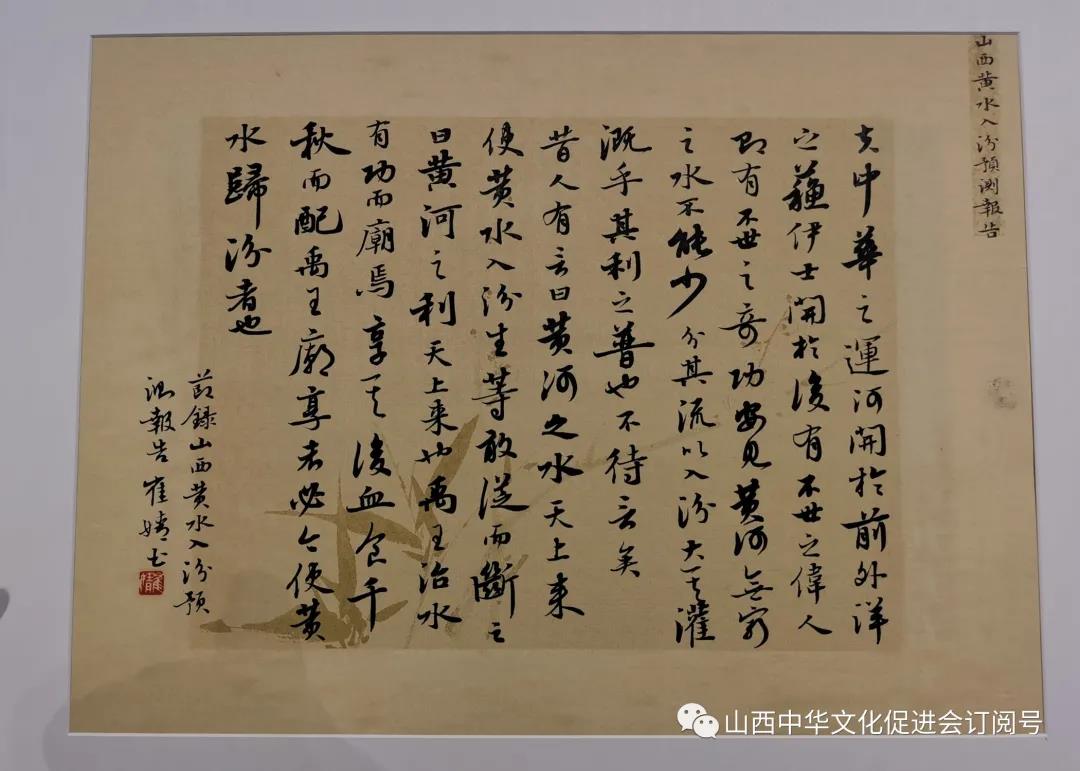 山西黄水入汾預測報告
夫中華之運河開於前外洋
之蘓伊士開於後有不世之偉人
即有不世之奇功安見黄河無窮
之水不能少分其流以入汾大其灌
溉乎其利之普也不待言矣
昔人有言曰黄河之水天上来
使黄水入汾生等敢從而斷之
曰黄河之利天上来也禹王治水
有功而廟焉享其後血食千
秋而配禹王廟享者必今使黄
水歸汾者也
節録山西黄水入汾預
測報告崔婧书
山西中华文化促进会订阅号